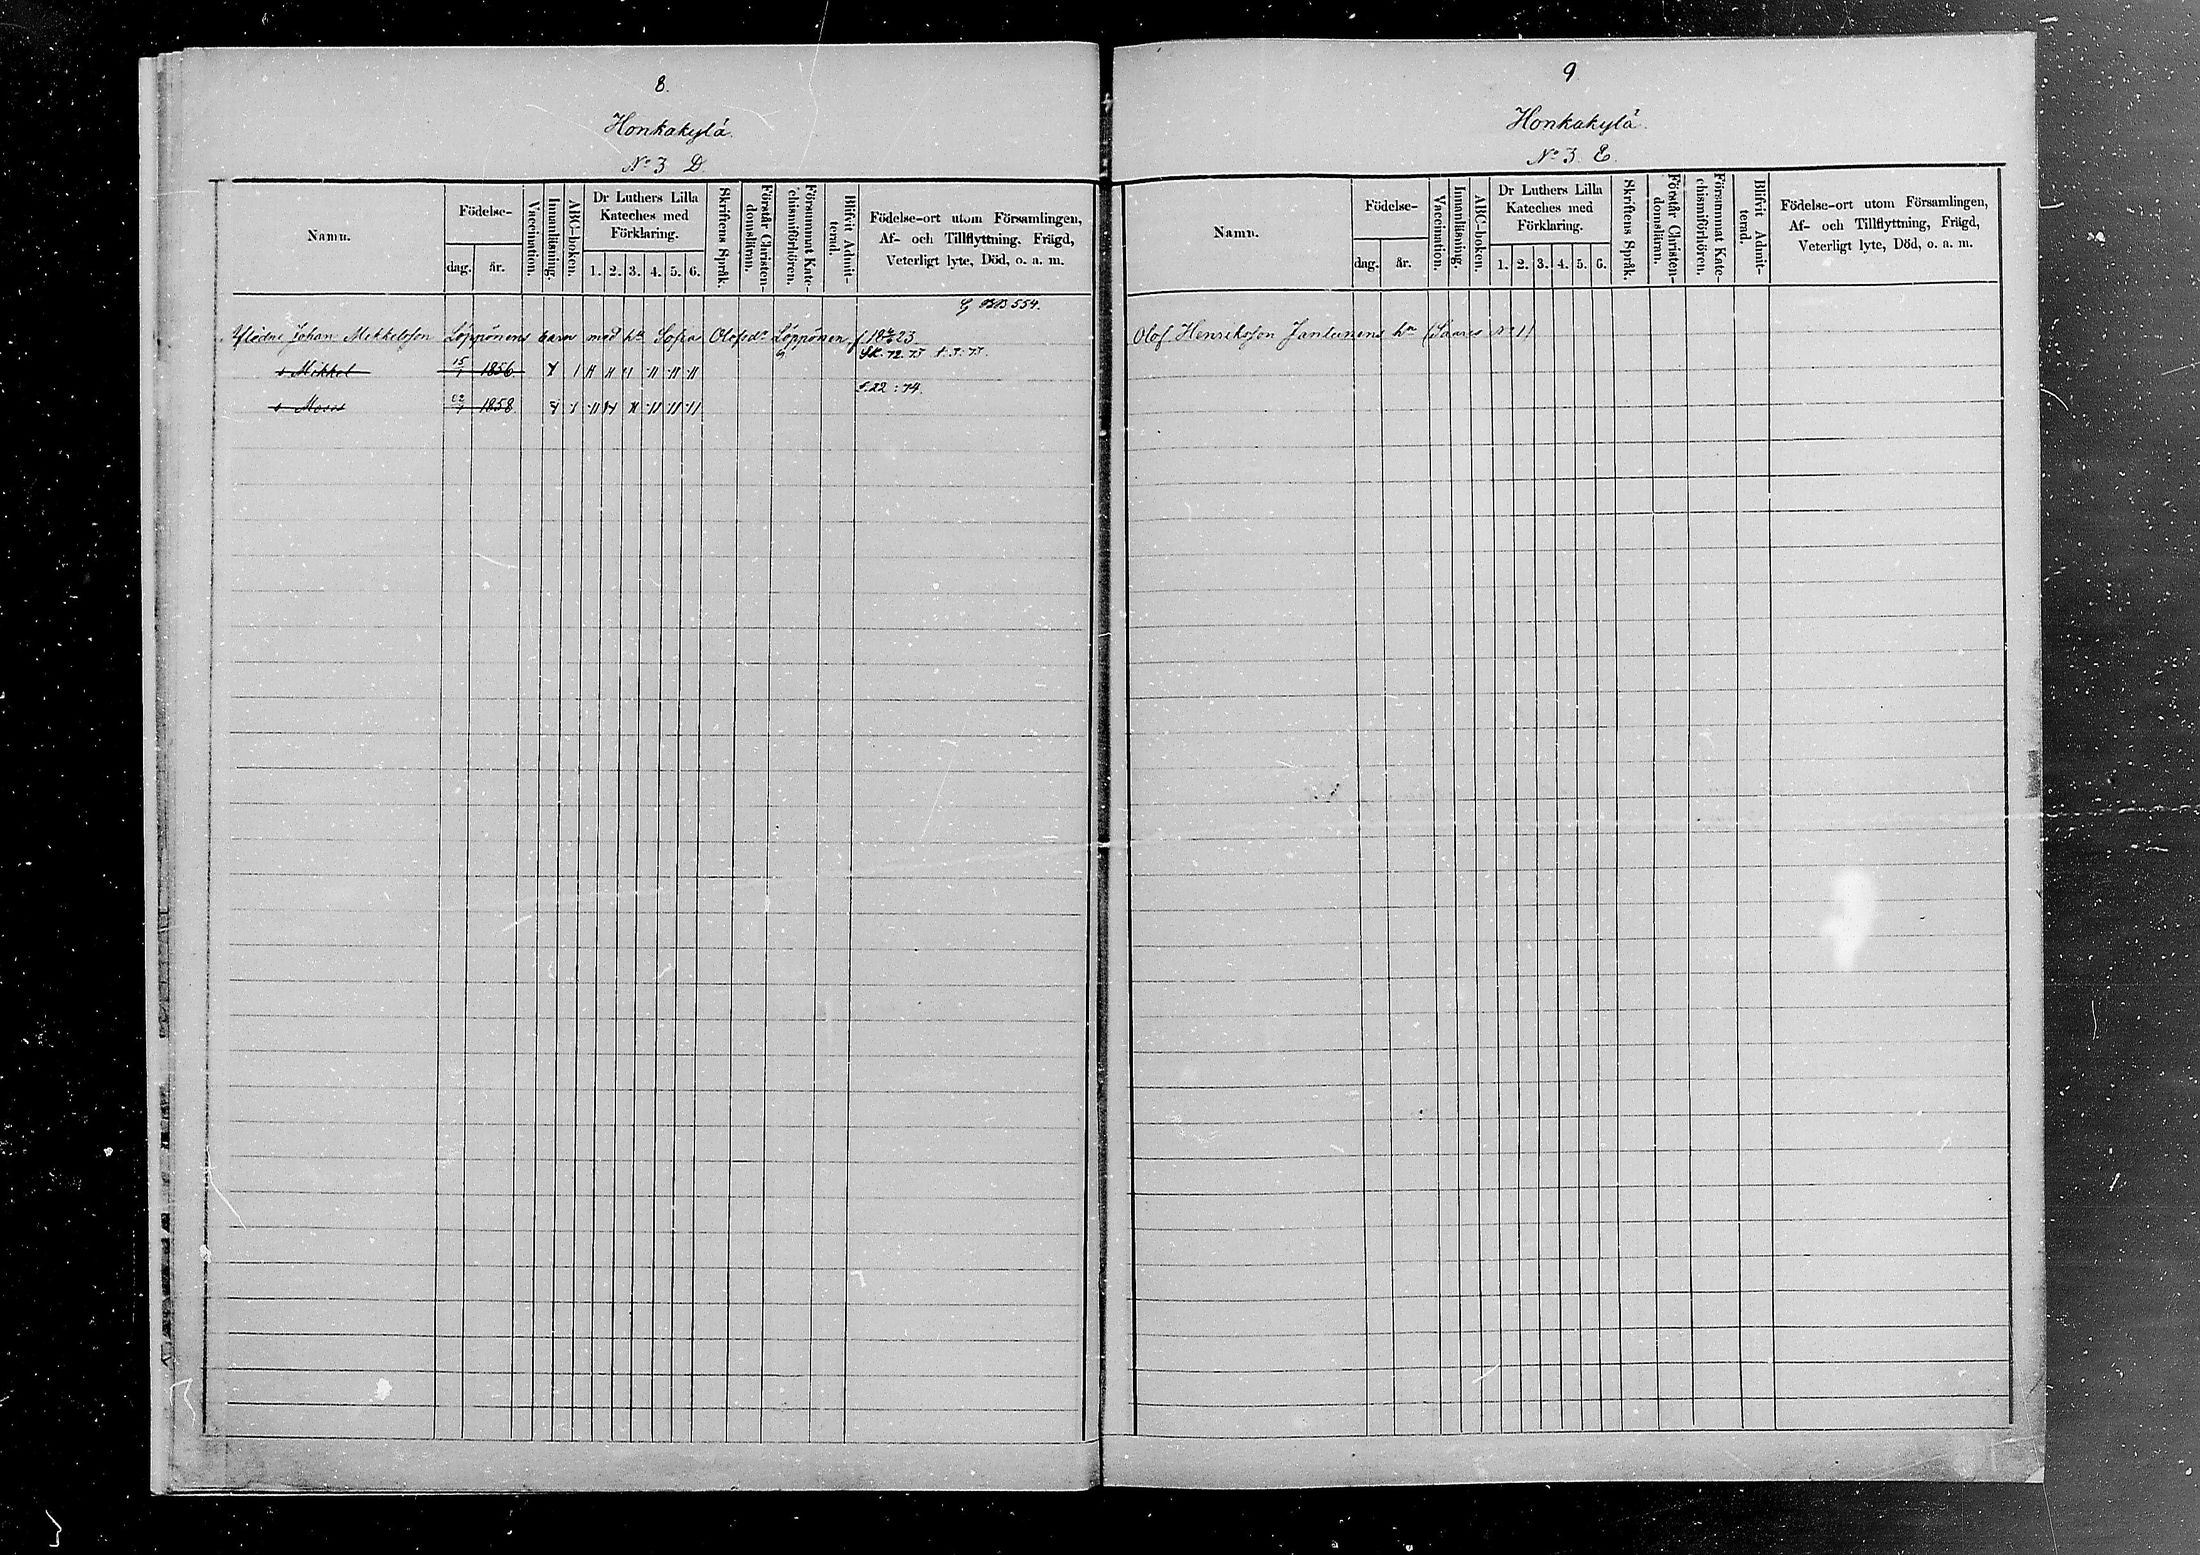 8.
Honkakylä.
No 3 D.
Namn.
Födelse-
dag.
år.
Vaccination.
Innanläsning.
ABC-boken.
Dr Luthers Lilla
Kateches med
Förklaring.
1. 2. 3. 4. 5. 6.
Skriftens Språk.
Förstår Christen-
domsläran.
Försummat Kate-
chismiförhören.
Blifvit Admit-
terad.
Födelse-ort utom Församlingen,
Af- och Tillflyttning, Frägd,
Veterligt lyte, Död, o. a. m.
BB 554.
Afledne Johan Mikkelsson Löppönens barn med hu Sofia Olofsdr Löppönen, f.
s Mikkel 15/1 1856
s Moses 1858
f. 22: 74.
9
Honkakylä.
No 3 E.
Namn.
Födelse-
dag.
år.
Vaccination.
Innanläsning.
ABC-boken.
Dr Luthers Lilla
Kateches med
Förklaring.
1. 2. 3. 4. 5. 6.
Skriftens Språk.
Förstår Christen-
domsläran.
Försummat Kate-
chismiförhören.
Blifvit Admit-
terad.
Födelse-ort utom Församlingen,
Af- och Tillflyttning, Frägd,
Veterligt lyte, Död, o. a. m.
Olof Henriksson Jantunens hn (Saares No 1)